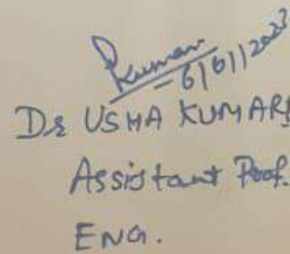 Pkumari
6/01/2023
Dr USHA KUMARI
Assistant Prof.
ENG.